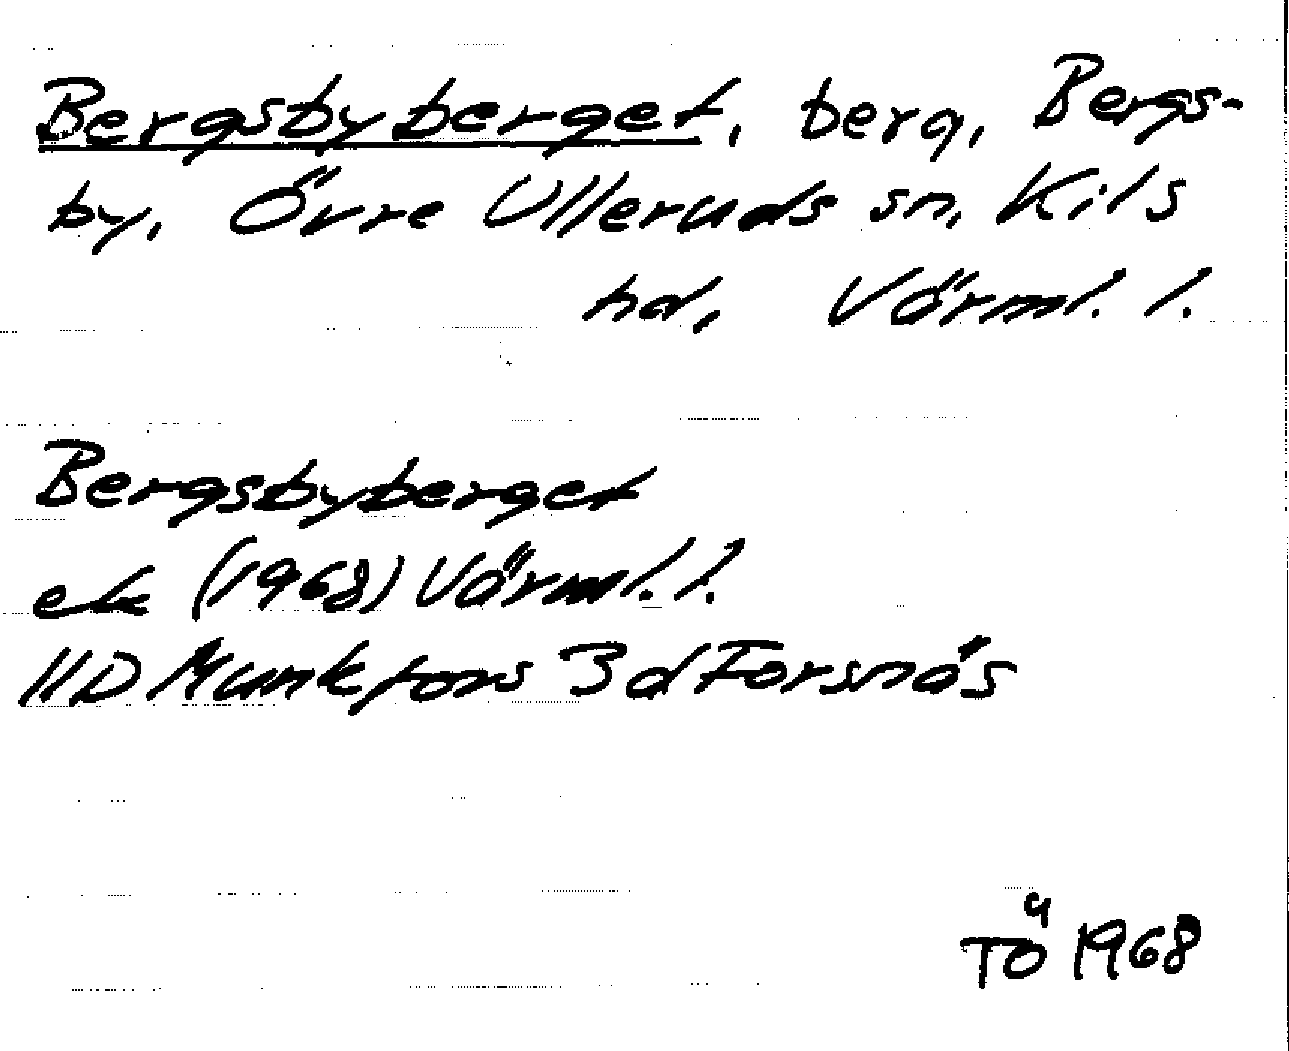 Bergsbyberget, berg, Bergs-
by, Övre Ulleruds sn, Kils
hd, Värml. l.
Bergsbyberget
ek (1968) Värml. l.
11D Munkfors 3d Forsnäs
TÖ 1968